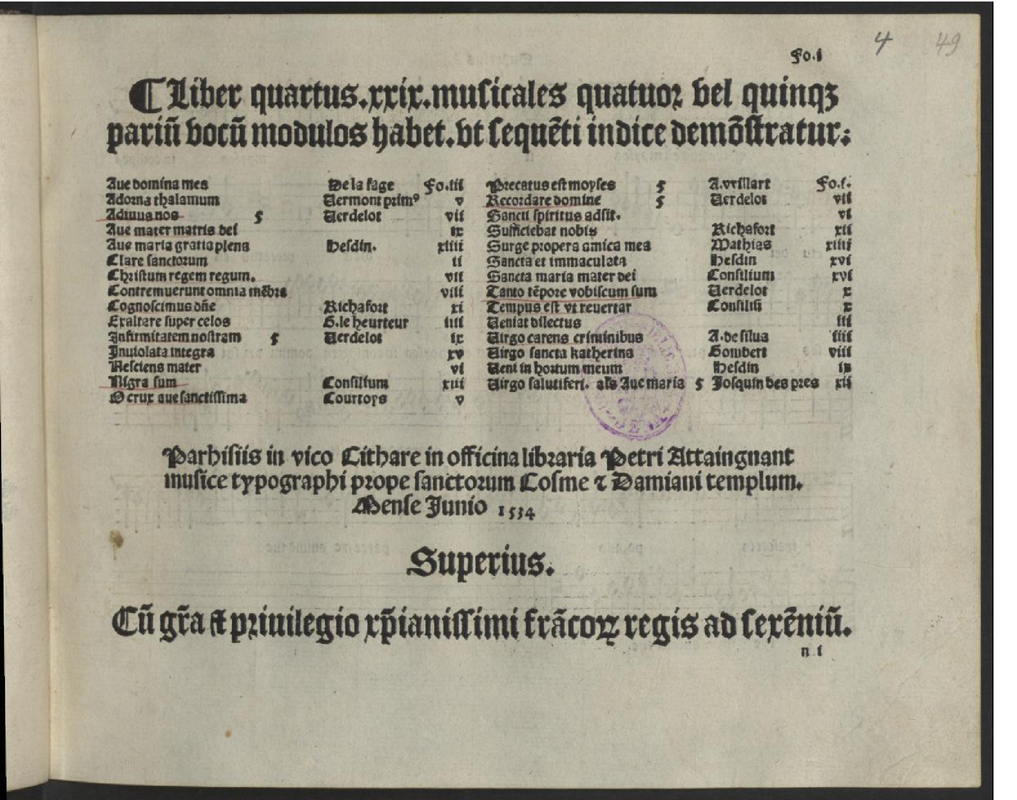 4 49
Fo.i
¶ Liber quartus.xxix.musicales quatuor vel quinqꝫ
pariũ vocũ modulos habet.vt sequẽti indice demõstratur:
Aue domina mea De la fage Fo.iii
Adorna thalamum Vermont primꝰ v
Adiuua nos 5 Verdelot vii
Aue mater matris dei ix
Aue maria gratia plena Hesdin. xiiii
Clare sanctorum ii
Christum regem regum. vii
Contremuerunt omnia mẽbra viii
Cognoscimus dñe Richafort xi
Exaltare super celos G.le heurteur iiii
Infirmitatem nostram 5 Verdelot ix
Inuiolata integra xv
Nesciens mater vi
Nigra sum Consilium xiii
O crux aue sanctissima Courtoys v
Precatus est moyses 5 A.vvillart Fo.i.
Recordare domine 5 Verdelot vii
Sancti spiritus adsit. vi
Sufficiebat nobis Richafort xii
Surge propera amica mea Mathias xiiii
Sancta et immaculata Hesdin xvi
Sancta maria mater dei Consilium xvi
Tanto tẽpore vobiscum sum Verdelot x
Tempus est vt reuertar Consiliũ x
Veniat dilectus iii
Virgo carens criminibus A.de silua iiii
Virgo sancta katherina Gombert viii
Veni in hortum meum Hesdin ix
Virgo salutiferi. als Aue maria 5 Josquin des pres xii
Parhisiis in vico Cithare in officina libraria Petri Attaingnant
musice typographi prope sanctorum Cosme ⁊ Damiani templum.
Mense Junio 1534
Superius.
Cũ gr̃a ⁊ priuilegio xp̃ianissimi frãcoꝝ regis ad sexẽniũ.
n i